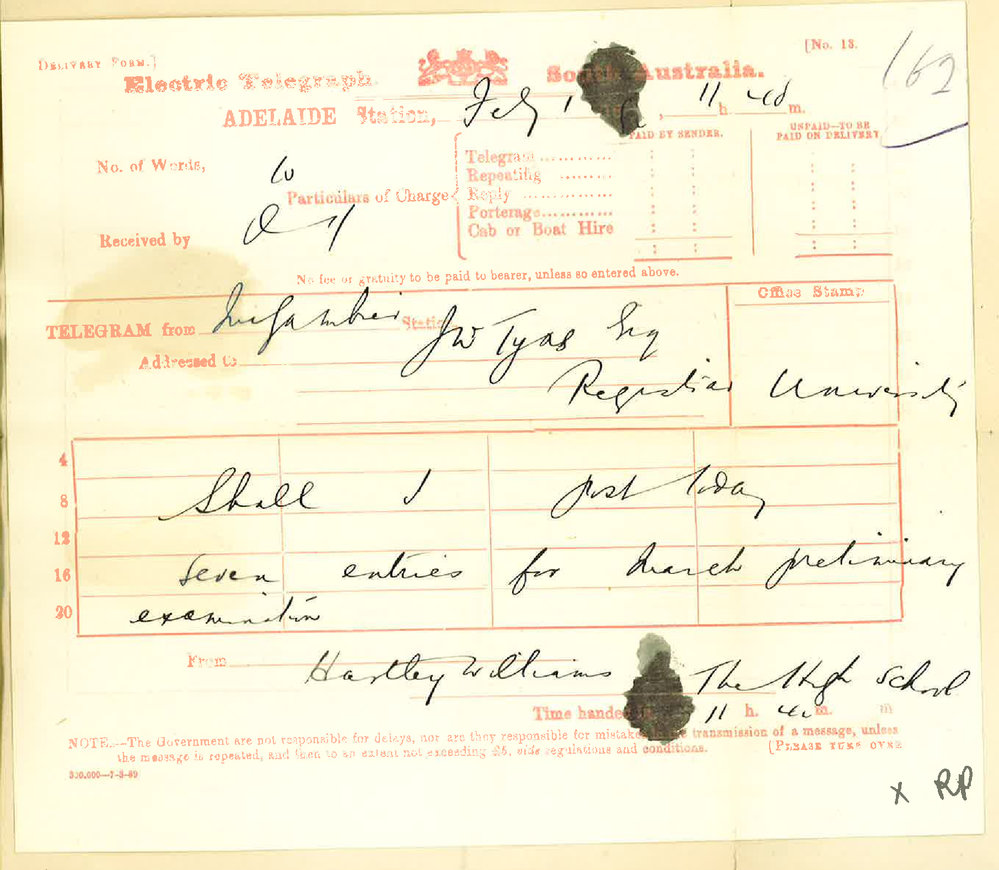 [No. 13.
162
DELIVERY FORM.]
Electric Telegraph. South Australia.
ADELAIDE Station, Feby 1 11 h. 40 m.
PAID BY SENDER. UNPAID—TO BE PAID ON DELIVERY
No. of Words, 10
Particulars of Charge
Telegram
Repeating
Reply
Porterage
Cab or Boat Hire
Received by
No fee or gratuity to be paid to bearer, unless so entered above.
Office Stamp
TELEGRAM from Mt Gambier Station
Addressed to JW Tyas Esq
Registrar University
4
8 Shall I post today
12
16 seven entries for March preliminary
20 examination
From Hartley Williams The High School
Time handed 11 h. 40 m. m
NOTE.—The Government are not responsible for delays, nor are they responsible for mistakes in the transmission of a message, unless
the message is repeated, and then to an extent not exceeding £5, vide regulations and conditions. [PLEASE TURN OVER
300,000—7-3-89
x RP